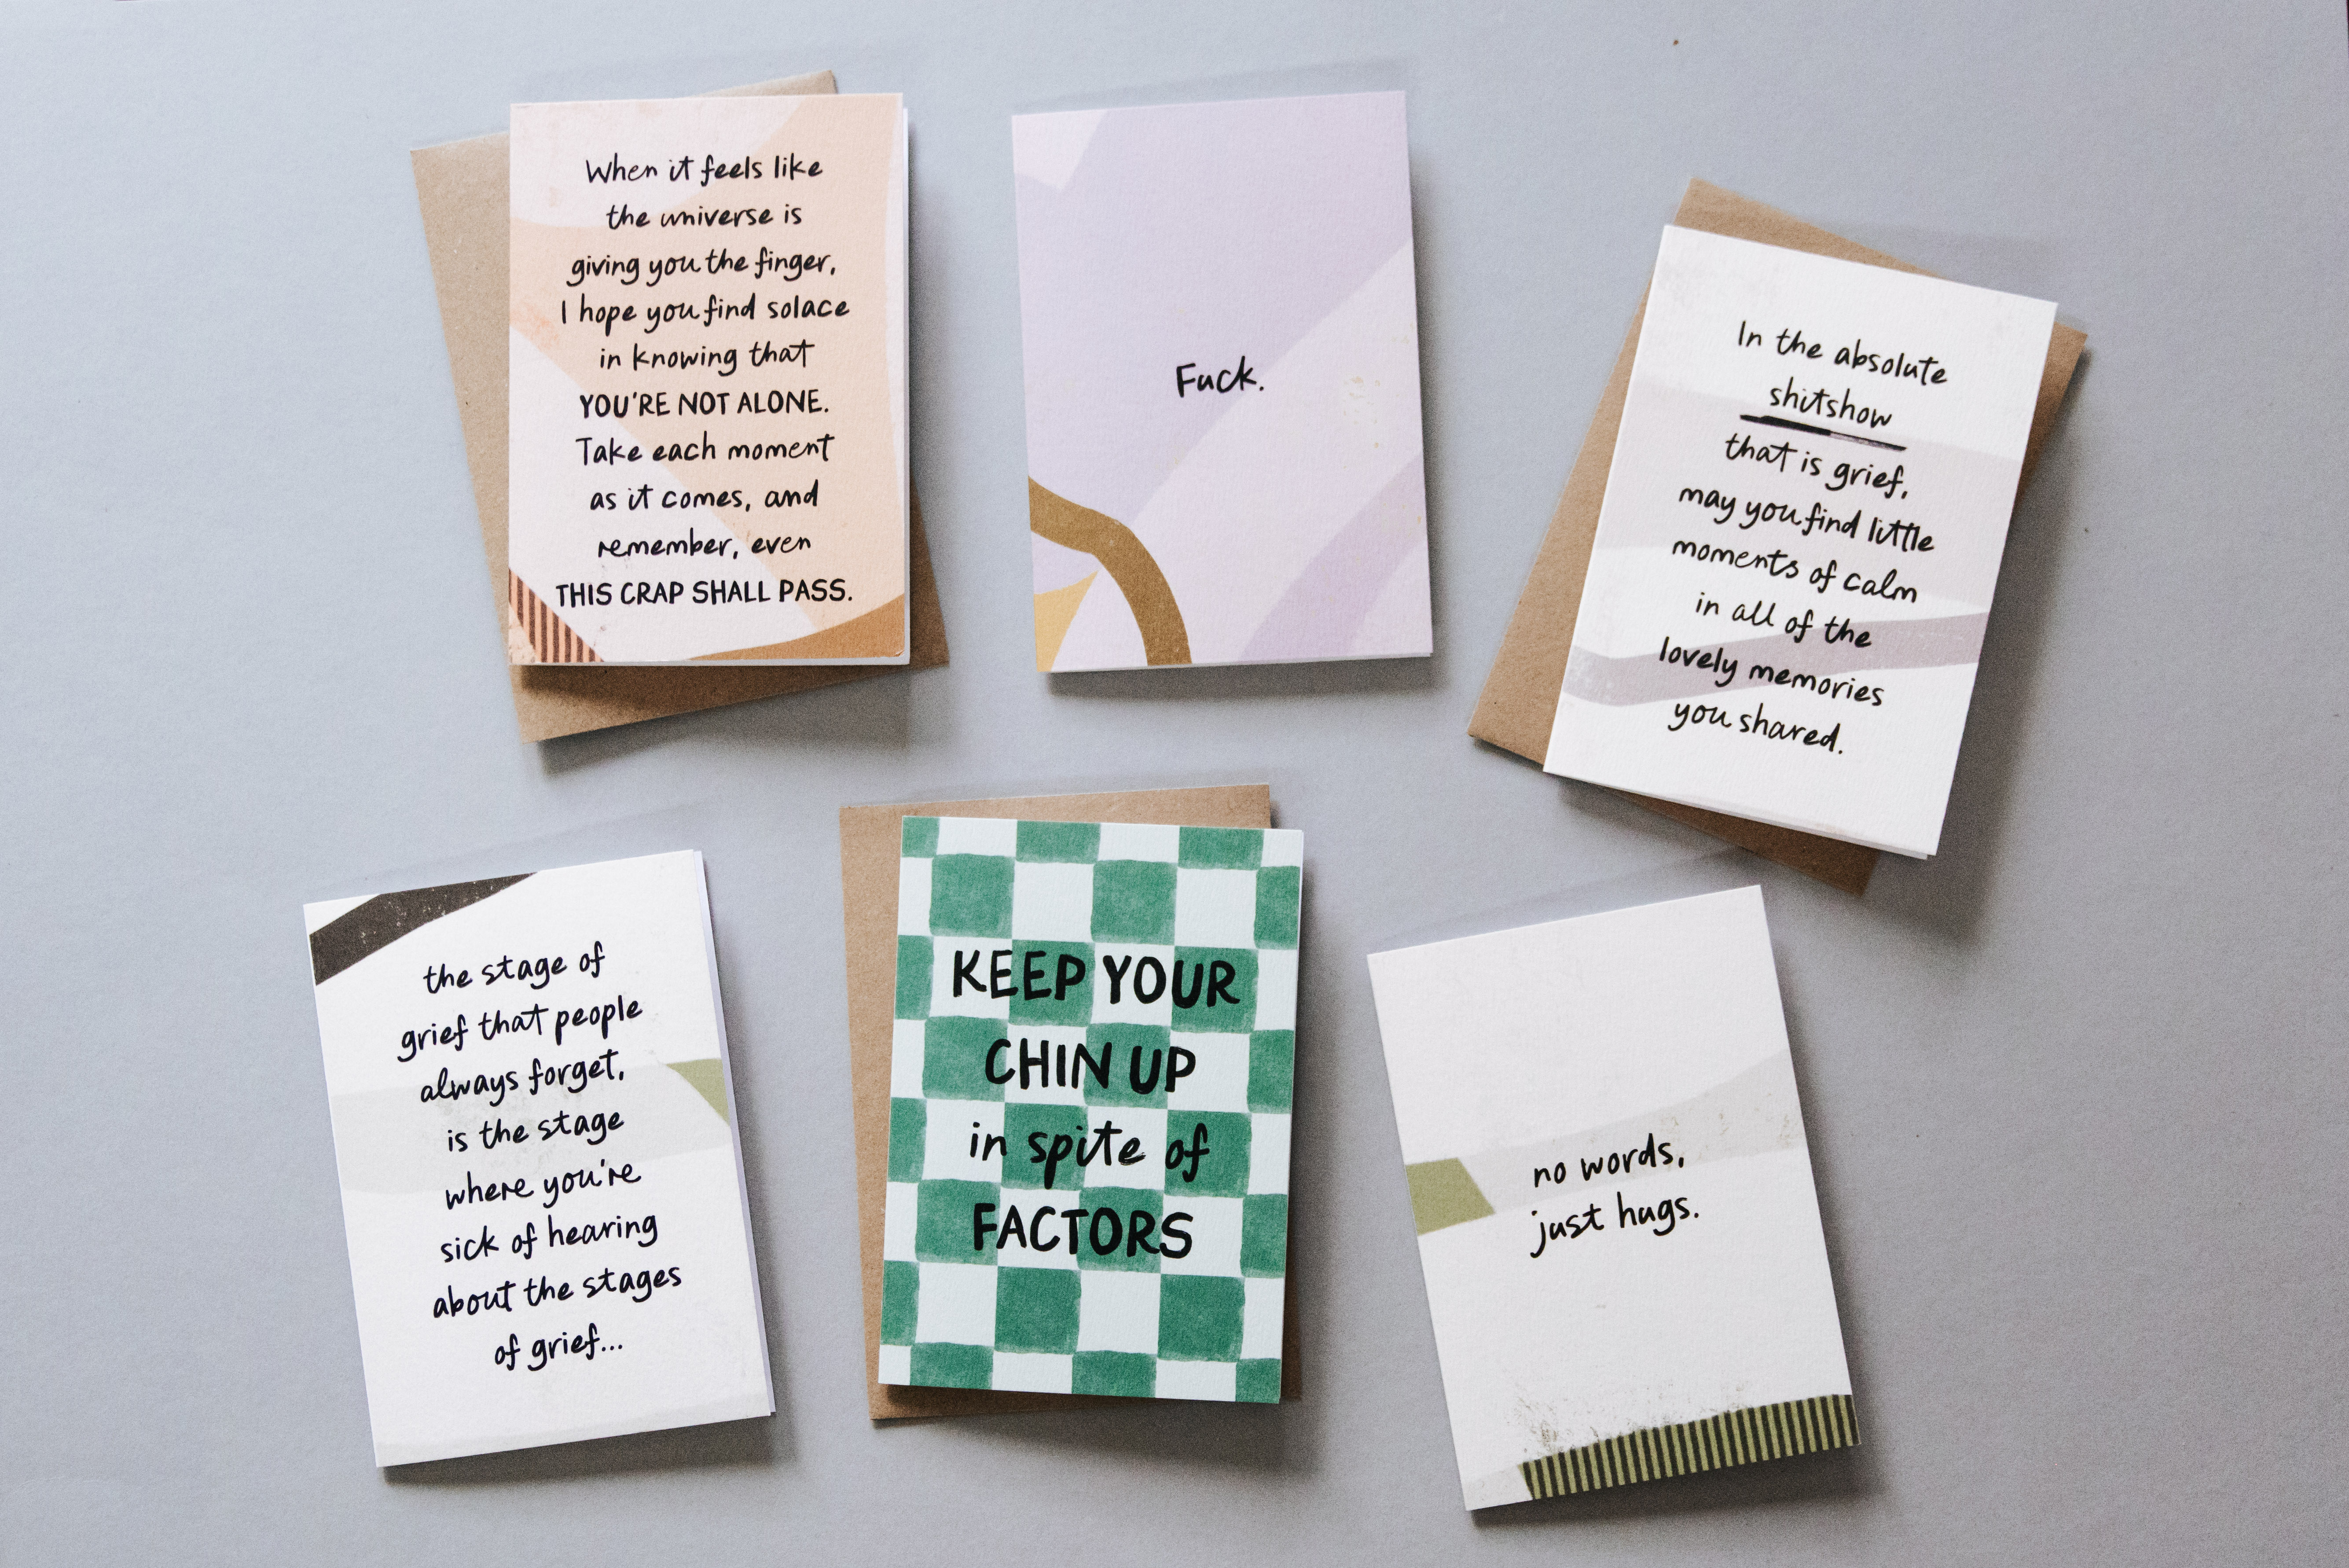 When it feels like
the universe is
giving you the finger,
I hope you find solace
in knowing that
YOU'RE NOT ALONE.
Take each moment
as it comes, and
remember, even
THIS CRAP SHALL PASS.
Fuck.
In the absolute
shitshow
that is grief,
may you find little
moments of calm
in all of the
lovely memories
you shared.
the stage of
grief that people
always forget,
is the stage
where you're
sick of hearing
about the stages
of grief...
KEEP YOUR
CHIN UP
in spite of
FACTORS
no words,
just hugs.